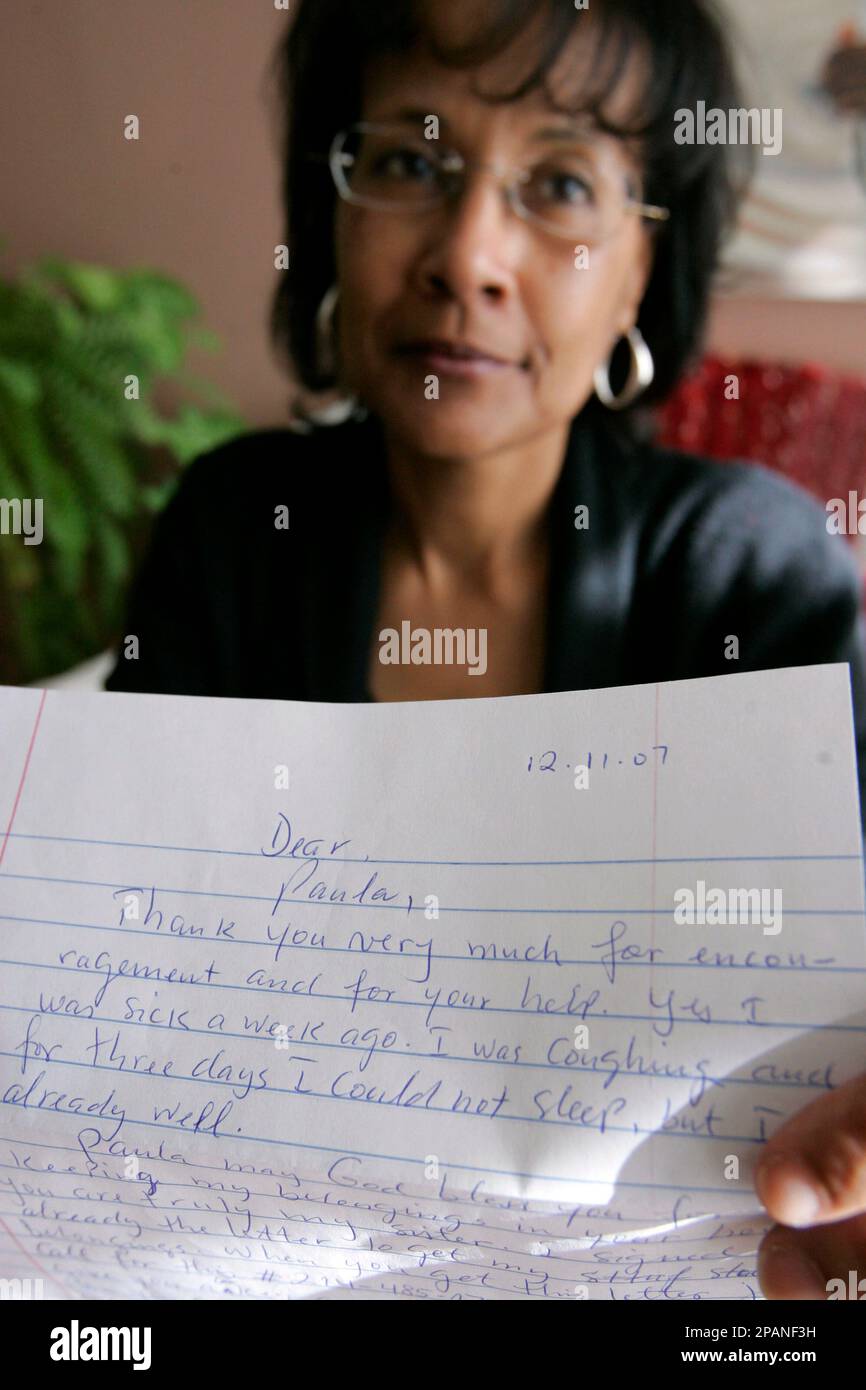 alamy
12.11.07
Dear,
Paula,
Thank you very much for encou-
ragement and for your help. Yes I
was sick a week ago. I was Coughing and
for three days I Could not sleep, but I
already well.
Paula may God bless you for
keeping my belongings in your
you are truly my sister. I signed
already the letter to get my stuff
belongings. When you get this letter
call for this #
alamy
Image ID: 2PANF3H
www.alamy.com